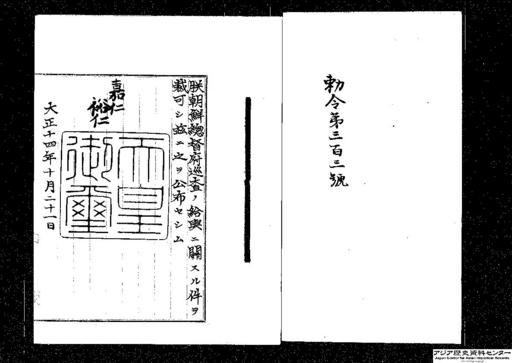 勅令第三百三號
朕朝鮮總督府巡査ノ給與ニ關スル件ヲ
裁可シ茲ニ之ヲ公布セシム
嘉仁
裕仁
天皇
御璽
大正十四年十月二十一日
アジア歴史資料センター
Japan Center for Asian Historical Records